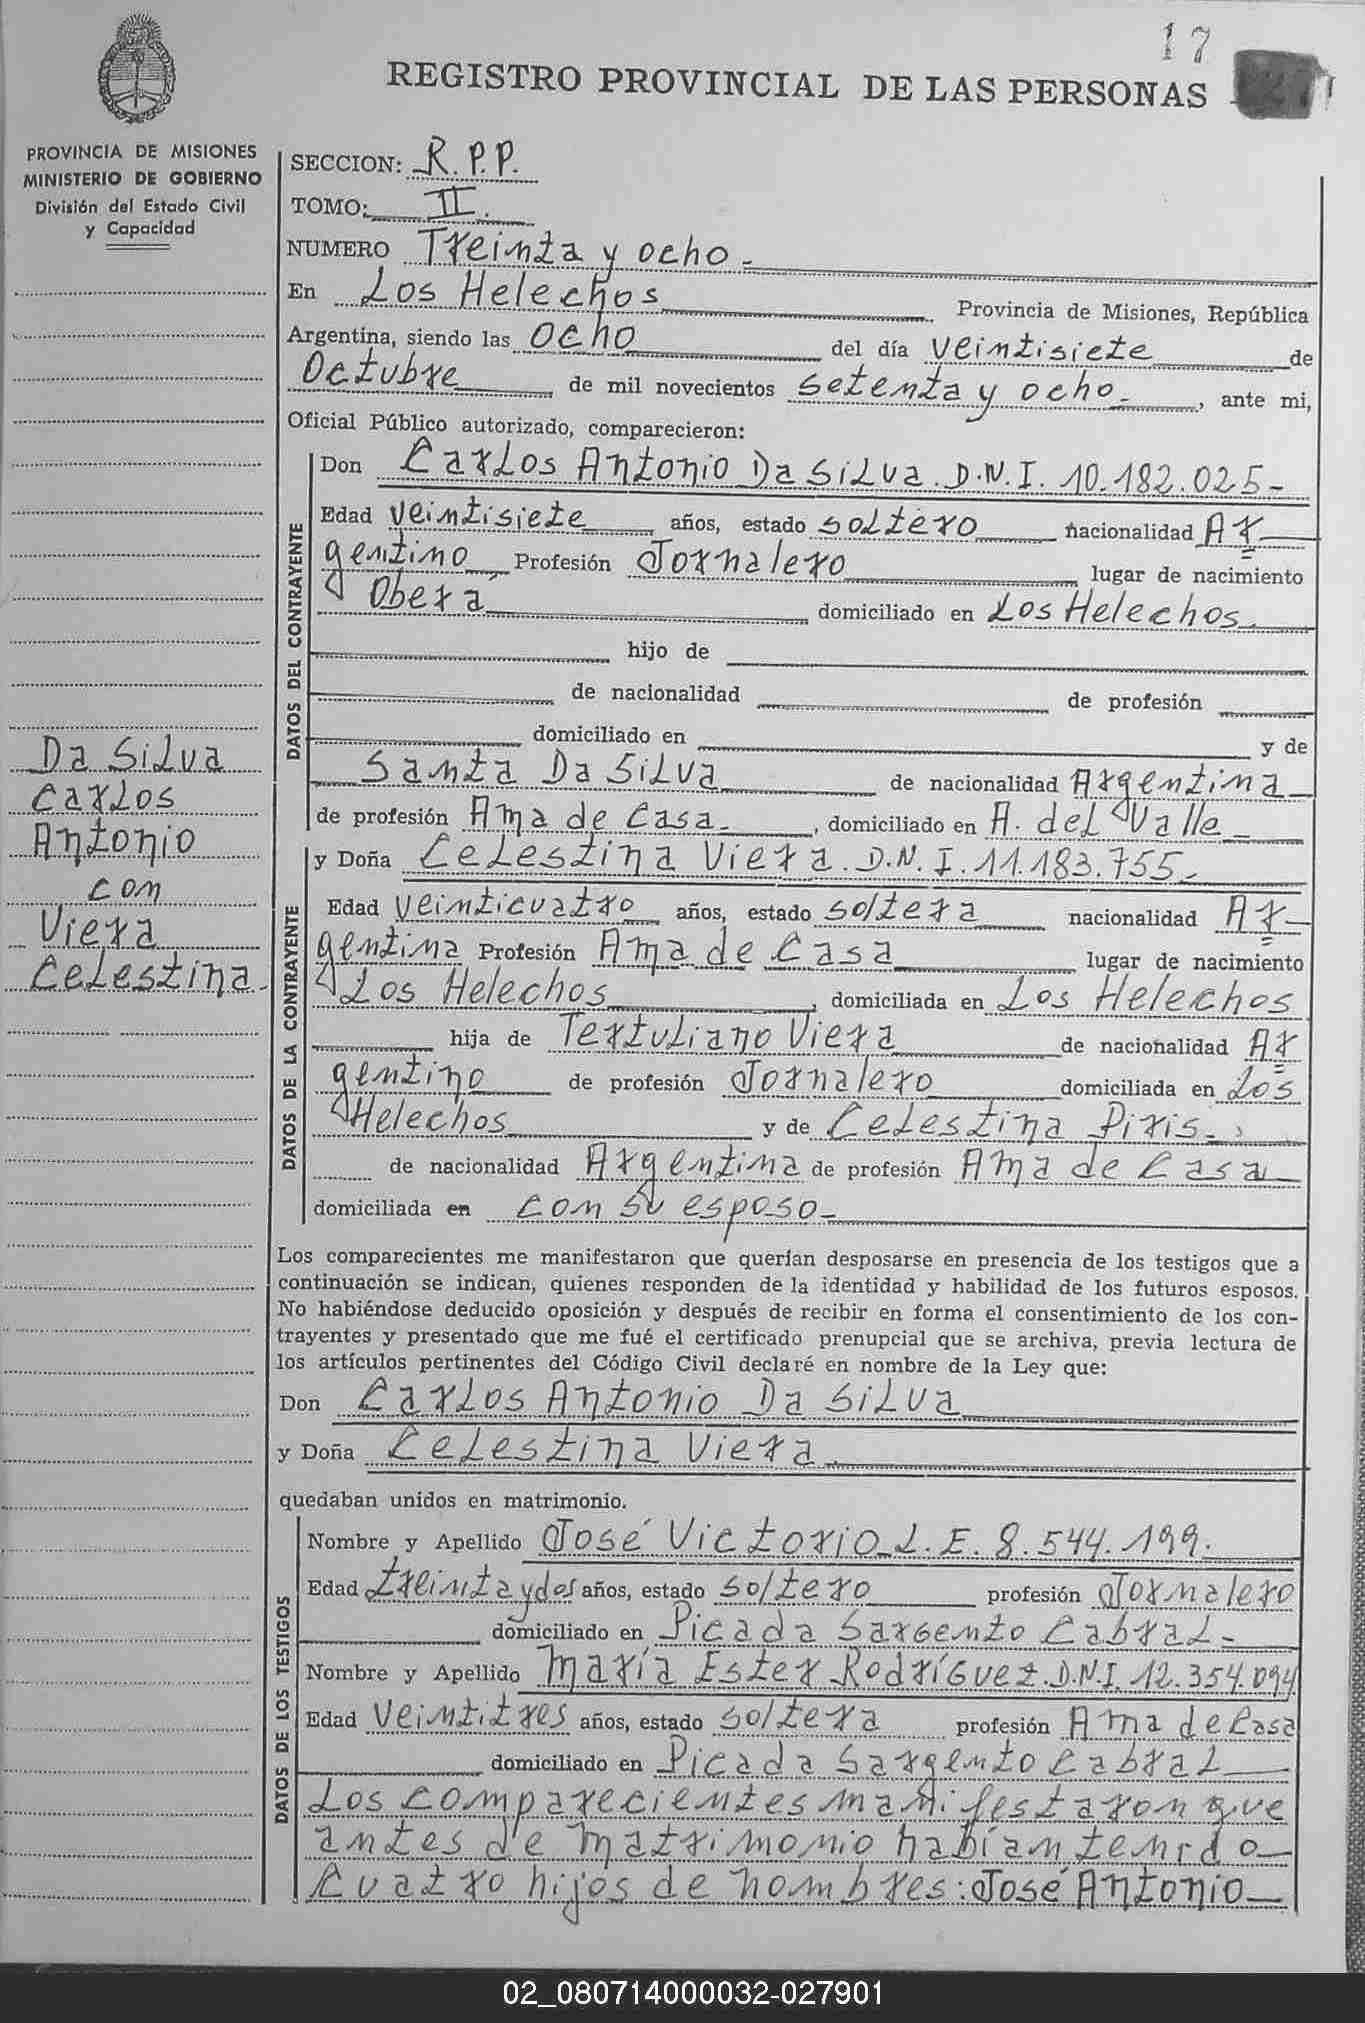 17
REGISTRO PROVINCIAL DE LAS PERSONAS
PROVINCIA DE MISIONES
MINISTERIO DE GOBIERNO
División del Estado Civil
y Capacidad
SECCION: R.P.P.
TOMO: II.
NUMERO Treinta y ocho.
En Los Helechos Provincia de Misiones, República
Argentina, siendo las ocho del día veintisiete de
Octubre de mil novecientos setenta y ocho.-, ante mi,
Oficial Público autorizado, comparecieron:
DATOS DEL CONTRAYENTE
Don Carlos Antonio Da Silva. D.N.I. 10.182.025-
Edad veintisiete años, estado soltero nacionalidad Ar=
gentino Profesión Jornalero lugar de nacimiento
Oberá domiciliado en Los Helechos.
hijo de
de nacionalidad de profesión
domiciliado en y de
Santa Da Silva de nacionalidad Argentina
de profesión Ama de Casa.-, domiciliado en A. del Valle
Da Silva
Carlos
Antonio
con
Viera
Celestina
DATOS DE LA CONTRAYENTE
y Doña Celestina Viera. D.N.I. 11.183.755.-
Edad veinticuatro años, estado soltera nacionalidad Ar=
gentina Profesión Ama de Casa lugar de nacimiento
Los Helechos, domiciliada en Los Helechos
hija de Tertuliano Viera de nacionalidad Ar=
gentino de profesión Jornalero domiciliada en Los
Helechos y de Celestina Piris.-
de nacionalidad Argentina de profesión Ama de Casa
domiciliada en con su esposo-
Los comparecientes me manifestaron que querían desposarse en presencia de los testigos que a
continuación se indican, quienes responden de la identidad y habilidad de los futuros esposos.
No habiéndose deducido oposición y después de recibir en forma el consentimiento de los con-
trayentes y presentado que me fué el certificado prenupcial que se archiva, previa lectura de
los artículos pertinentes del Código Civil declaré en nombre de la Ley que:
Don Carlos Antonio Da Silva
y Doña Celestina Viera
quedaban unidos en matrimonio.
DATOS DE LOS TESTIGOS
Nombre y Apellido José Victorio L.E. 8.544.199.
Edad treinta y dos años, estado soltero profesión Jornalero
domiciliado en Picada Sargento Cabral-
Nombre y Apellido María Ester Rodríguez. D.N.I. 12.354.094
Edad veintitres años, estado soltera profesión Ama de Casa
domiciliado en Picada Sargento Cabral
Los comparecientes manifestaron que
antes de matrimonio habían tenido
cuatro hijos de nombres: José Antonio
02_080714000032-027901